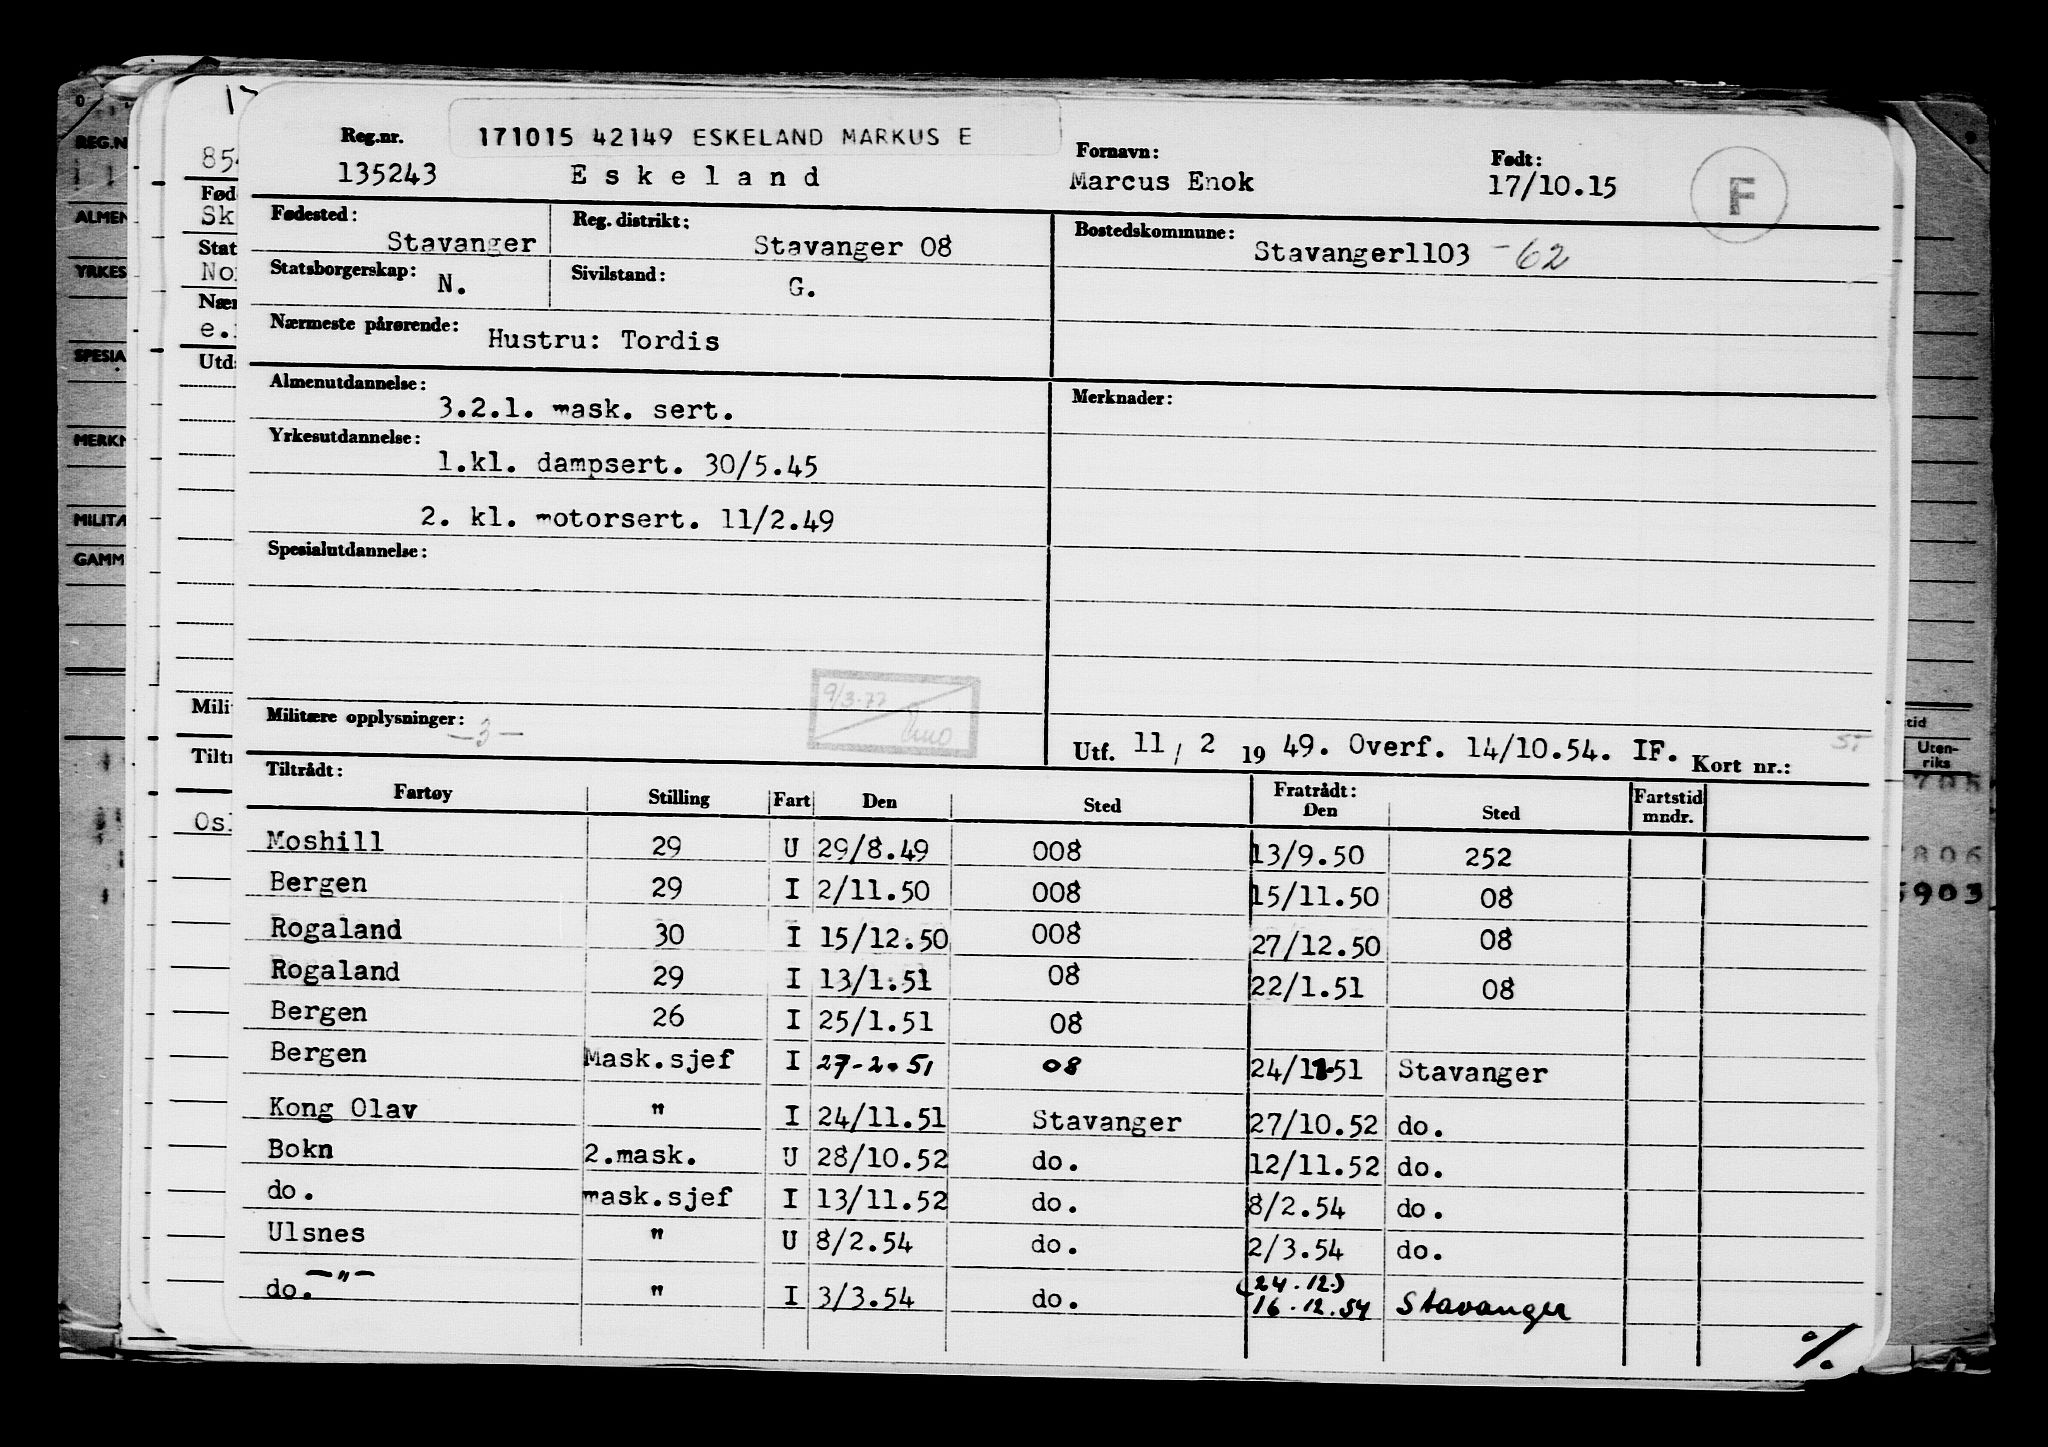 171015 42149 ESKELAND MARKUS E
Reg.nr. Fornavn: Født:
135243 Eskeland Marcus Enok 17/10.15 F
Fødested: Reg. distrikt: Bostedskommune:
Stavanger Stavanger 08 Stavanger1103 -62
Statsborgerskap: N. Sivilstand: G.
Nærmeste pårørende: Hustru: Tordis
Almenutdannelse: Merknader:
3.2.1. mask. sert.
Yrkesutdannelse:
1.kl. dampsert. 30/5.45
2. kl. motorsert. 11/2.49
Spesialutdannelse:
9/3-77
Militære opplysninger: -3-
Utf. 11/2 1949. Overf. 14/10.54. IF. Kort nr.:
Tiltrådt: Fratrådt:
Fartøy Stilling Fart Den Sted Den Sted Fartstid mndr.
Moshill 29 U 29/8.49 008 13/9.50 252
Bergen 29 I 2/11.50 008 15/11.50 08
Rogaland 30 I 15/12.50 008 27/12.50 08
Rogaland 29 I 13/1.51 08 22/1.51 08
Bergen 26 I 25/1.51 08
Bergen Mask.sjef I 27-2.51 08 24/11.51 Stavanger
Kong Olav " I 24/11.51 Stavanger 27/10.52 do.
Bokn 2.mask. U 28/10.52 do. 12/11.52 do.
do. mask.sjef I 13/11.52 do. 8/2.54 do.
Ulsnes " U 8/2.54 do. 2/3.54 do.
-"- (24.12)
do. " I 3/3.54 do. 16.12.54 Stavanger
%.
REG.N
ALMEN
YRKES
SPESIA
MERKN
MILITA
GAMM
854
Fød
Sk
Stat
No
Nær
e.
Utd
Mili
Tiltr
Os
tid
Uten-
riks
705
806
5903